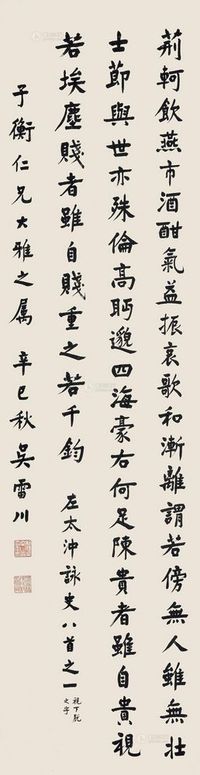 荊軻飲燕市酒酣氣益振哀歌和漸離謂若傍無人雖無壯
士節與世亦殊倫高眄邈四海豪右何足陳貴者雖自貴視
若埃塵賤者雖自賤重之若千鈞 左太沖詠史八首之一
視下脫
之字
子衡仁兄大雅之属 辛巳秋 吳雷川